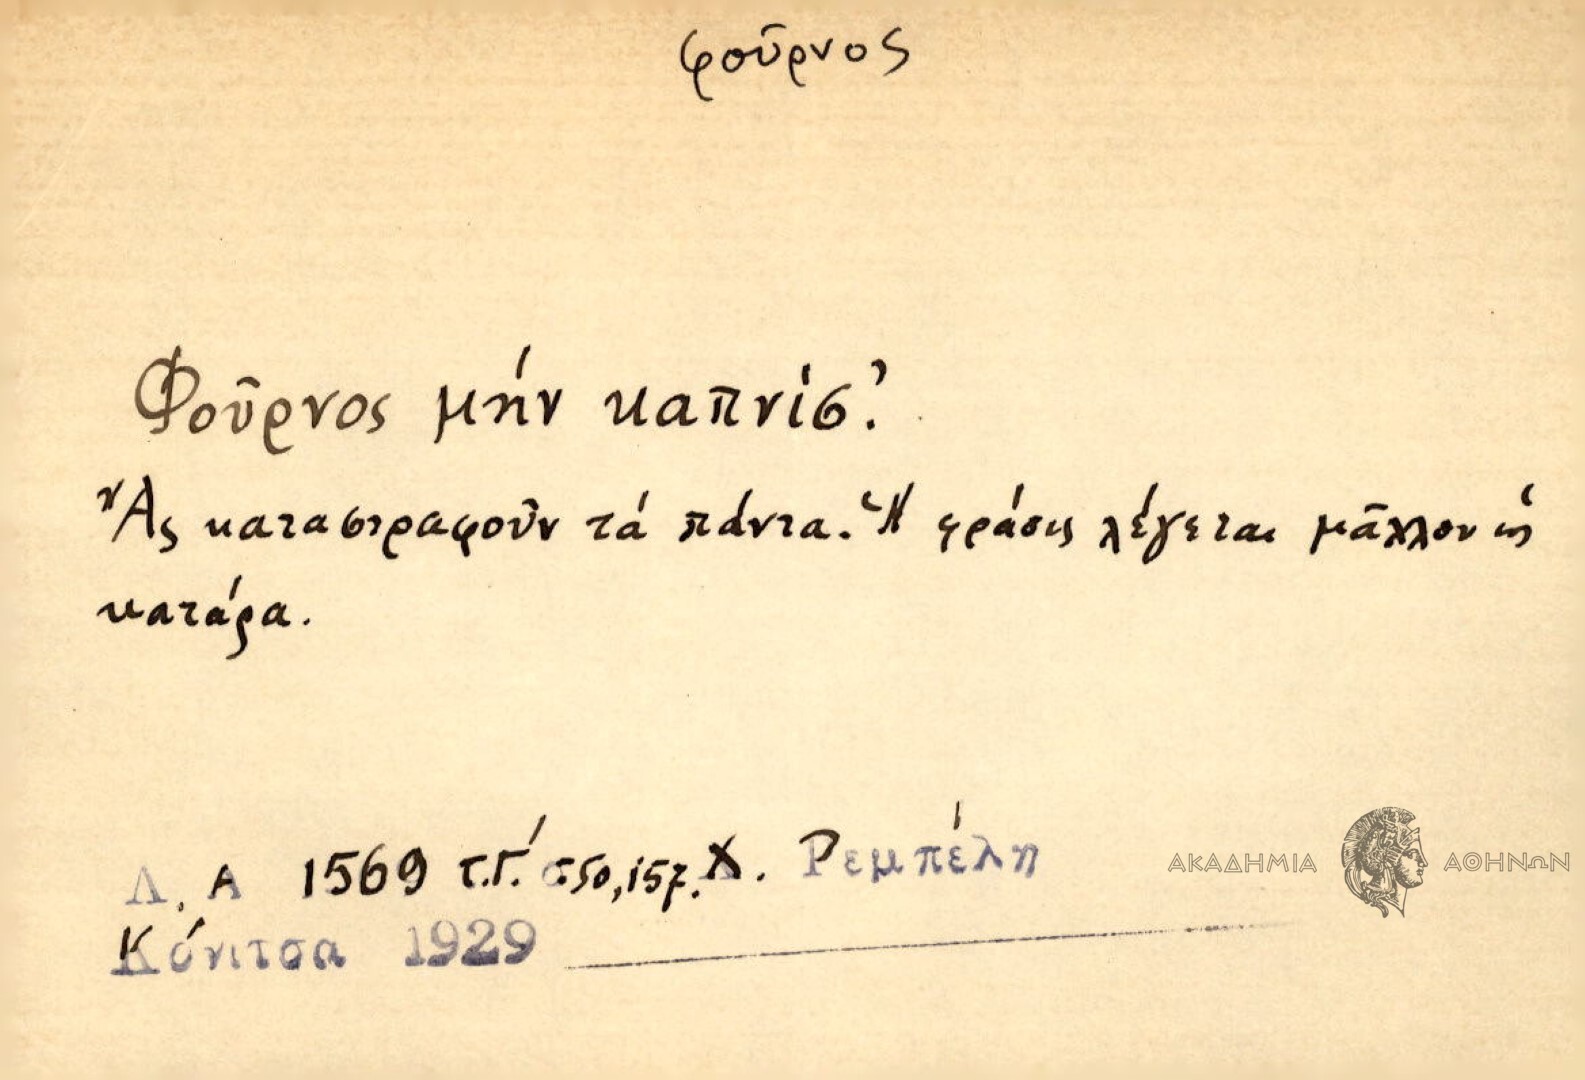 φοῦρνος
Φοῦρνος μήν καπνίσ'.
Ἄς καταστραφοῦν τά πάντα. Ἡ φράσις λέγεται μᾶλλον ὡς
κατάρα.
Λ. Α 1569 τ.Γ΄ σ50,157. Χ. Ρεμπέλη
Κόνιτσα 1929
ΑΚΑΔΗΜΙΑ ΑΘΗΝΩΝ